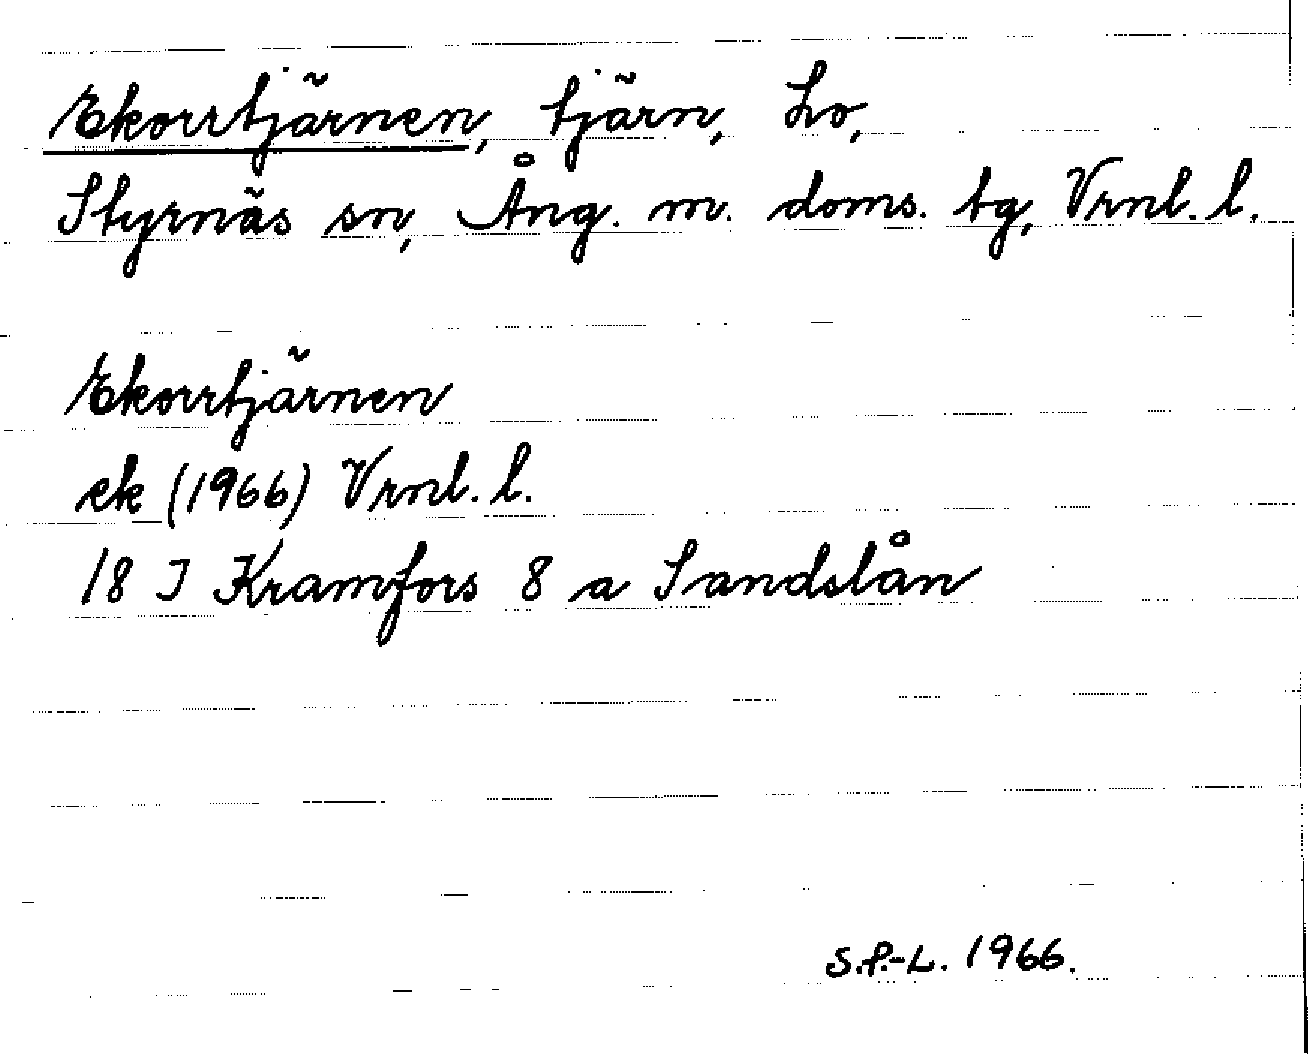 Ekorrtjärnen, tjärn, Lo,
Styrnäs sn, Ång. m. doms. tg, Vrnl. l.
Ekorrtjärnen
ek (1966) Vrnl. l.
18 I Kramfors 8 a Sandslån
S.P.-L. 1966.